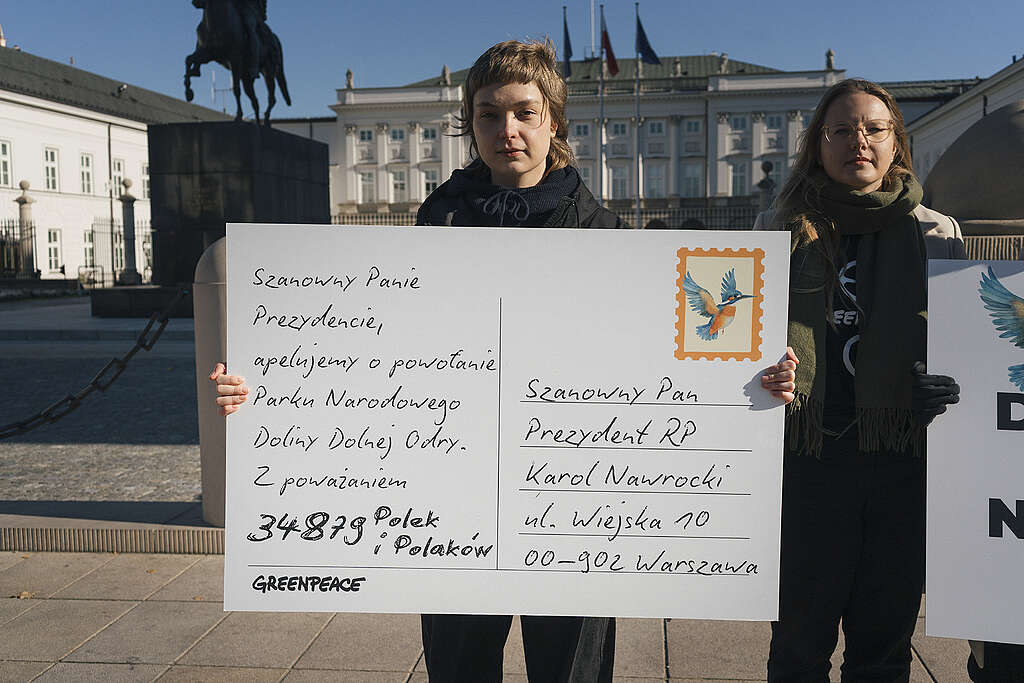 Szanowny Panie
Prezydencie,
apelujemy o powołanie
Parku Narodowego
Doliny Dolnej Odry.
Z poważaniem
34879 Polek
i Polaków
GREENPEACE
Szanowny Pan
Prezydent RP
Karol Nawrocki
ul. Wiejska 10
00-902 Warszawa
D
N